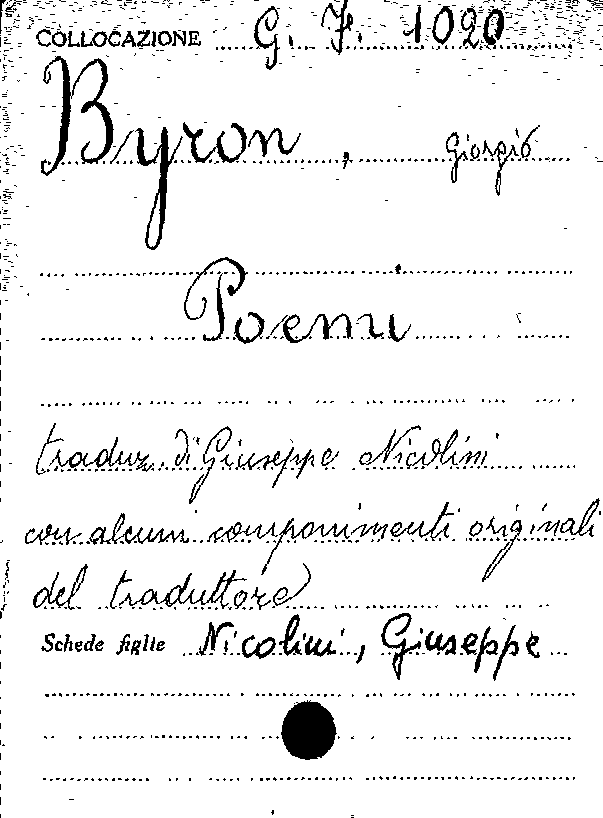 COLLOCAZIONE G. F. 1020
Byron, Giorgio
Poemi
traduz. di Giuseppe Nicolini
con alcuni componimenti originali
del traduttore
Schede figlie Nicolini, Giuseppe